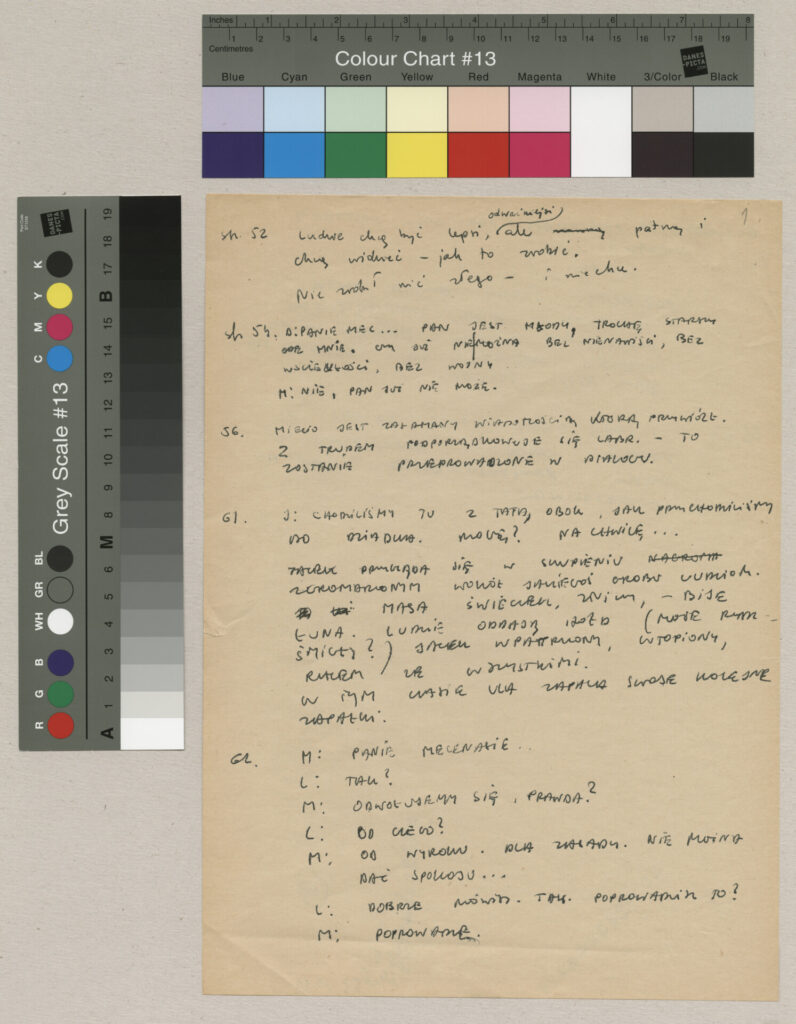 Inches 1 2 3 4 5 6 7 8
1 2 3 4 5 6 7 8 9 10 11 12 13 14 15 16 17 18 19
Centimetres
Colour Chart #13
DANES-PICTA.COM
Blue Cyan Green Yellow Red Magenta White 3/Color Black
DANES-PICTA.COM
Grey Scale #13
R G B WH GR BL C M Y K
A 1 2 3 4 5 6 M 8 9 10 11 12 13 14 15 B 17 18 19
1
odważniejsi
str. 52 Ludzie chcą być lepsi, ale patrzą i
chcą widzieć – jak to zrobić.
Nie zrobił nic złego – i niechce.
str 54. D: PANIE MEC... PAN JEST MŁODY, TROCHĘ STARSZY
ODE MNIE. CZY JUŻ NIEMOŻNA BEZ NIENAWIŚCI, BEZ
WŚCIEKŁOŚCI, BEZ WOJNY
M: NIE, PAN JUŻ NIE MOŻE.
56. MIECIO JEST ZAŁAMANY WIADOMOŚCIĄ KTÓRĄ PRZYWIÓZŁ.
Z TRUDEM PODPORZĄDKOWUJE SIĘ LABR. – TO
ZOSTANIE PRZEPROWADZONE W DIALOGU.
61. J: CHODZILIŚMY TU Z TATĄ, OBOK, JAK PRZYCHODZILIŚMY
DO DZIADKA. MOGĘ? NA CHWILĘ...
JACEK PRZYGLĄDA SIĘ W SKUPIENIU
ZGROMADZONYM WOKÓŁ JAKIEGOŚ GROBU LUDZIOM.
MASA ŚWIECZEK, ZNICZY, – BIJE
ŁUNA. LUDZIE ODDAJĄ HOŁD (MOŻE
ŚMIGŁY?) JACEK WPATRZONY, WTOPIONY,
RAZEM ZE WSZYSTKIMI.
W TYM CZASIE ULA ZAPALA SWOJE KOLEJNE
ZAPAŁKI.
62. M: PANIE MECENASIE..
L: TAK?
M: ODWOŁUJEMY SIĘ, PRAWDA?
L: OD CZEGO?
M: OD WYROKU. DLA ZASADY. NIE MOŻNA
DAĆ SPOKOJU...
L: DOBRZE MÓWISZ. TAK. POPROWADZISZ TO?
M: POPROWADZĘ.